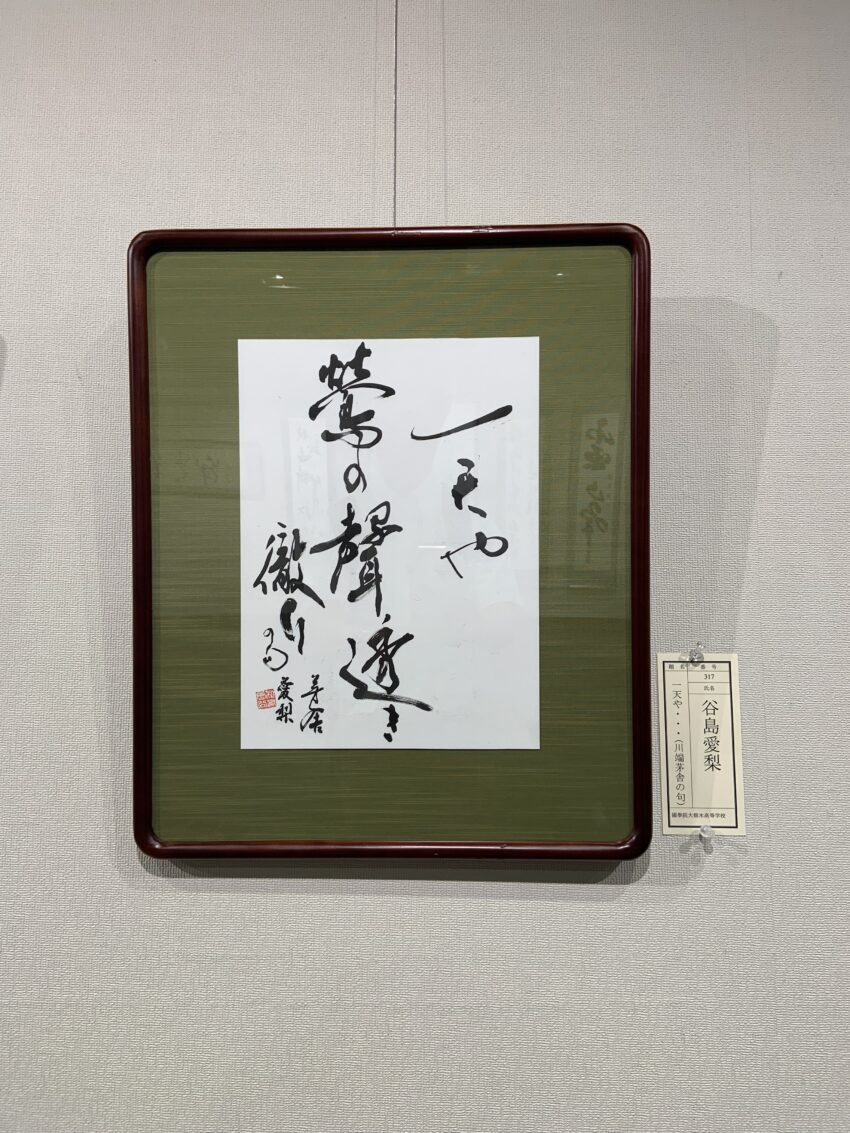 一天や
鶯の聲透き
徹り
の句
茅舎
愛梨
番号
317
氏名
谷島愛梨
題名
一天や・・・(川端茅舎の句)
國學院大栃木高等学校